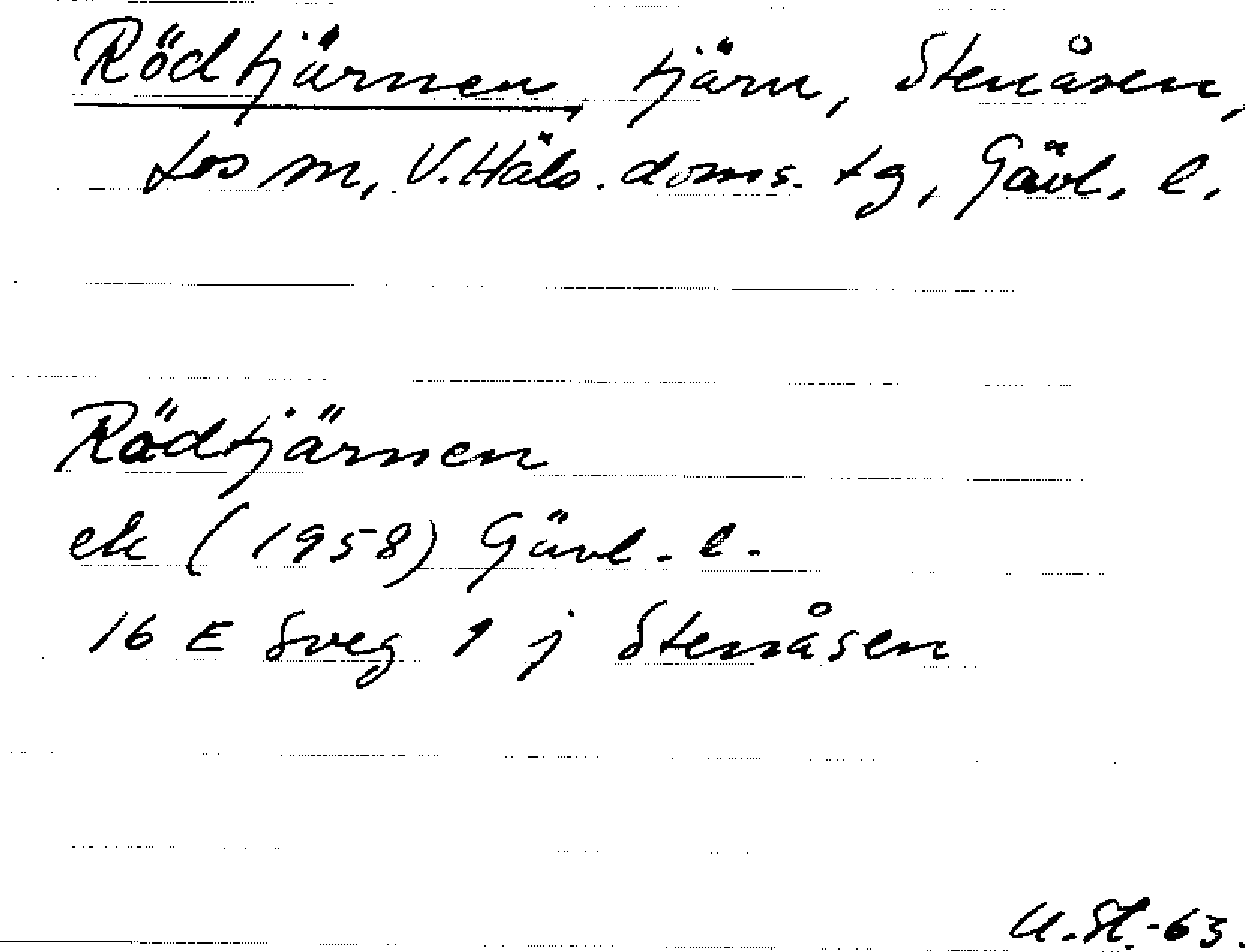 Rödtjärnen, tjärn, Stenåsen,
Los sn, V. Häls. doms. tg, Gävl. l.
Rödtjärnen
ek (1958) Gävl. l.
16 E Sveg 1 j Stenåsen
U. St. -63.